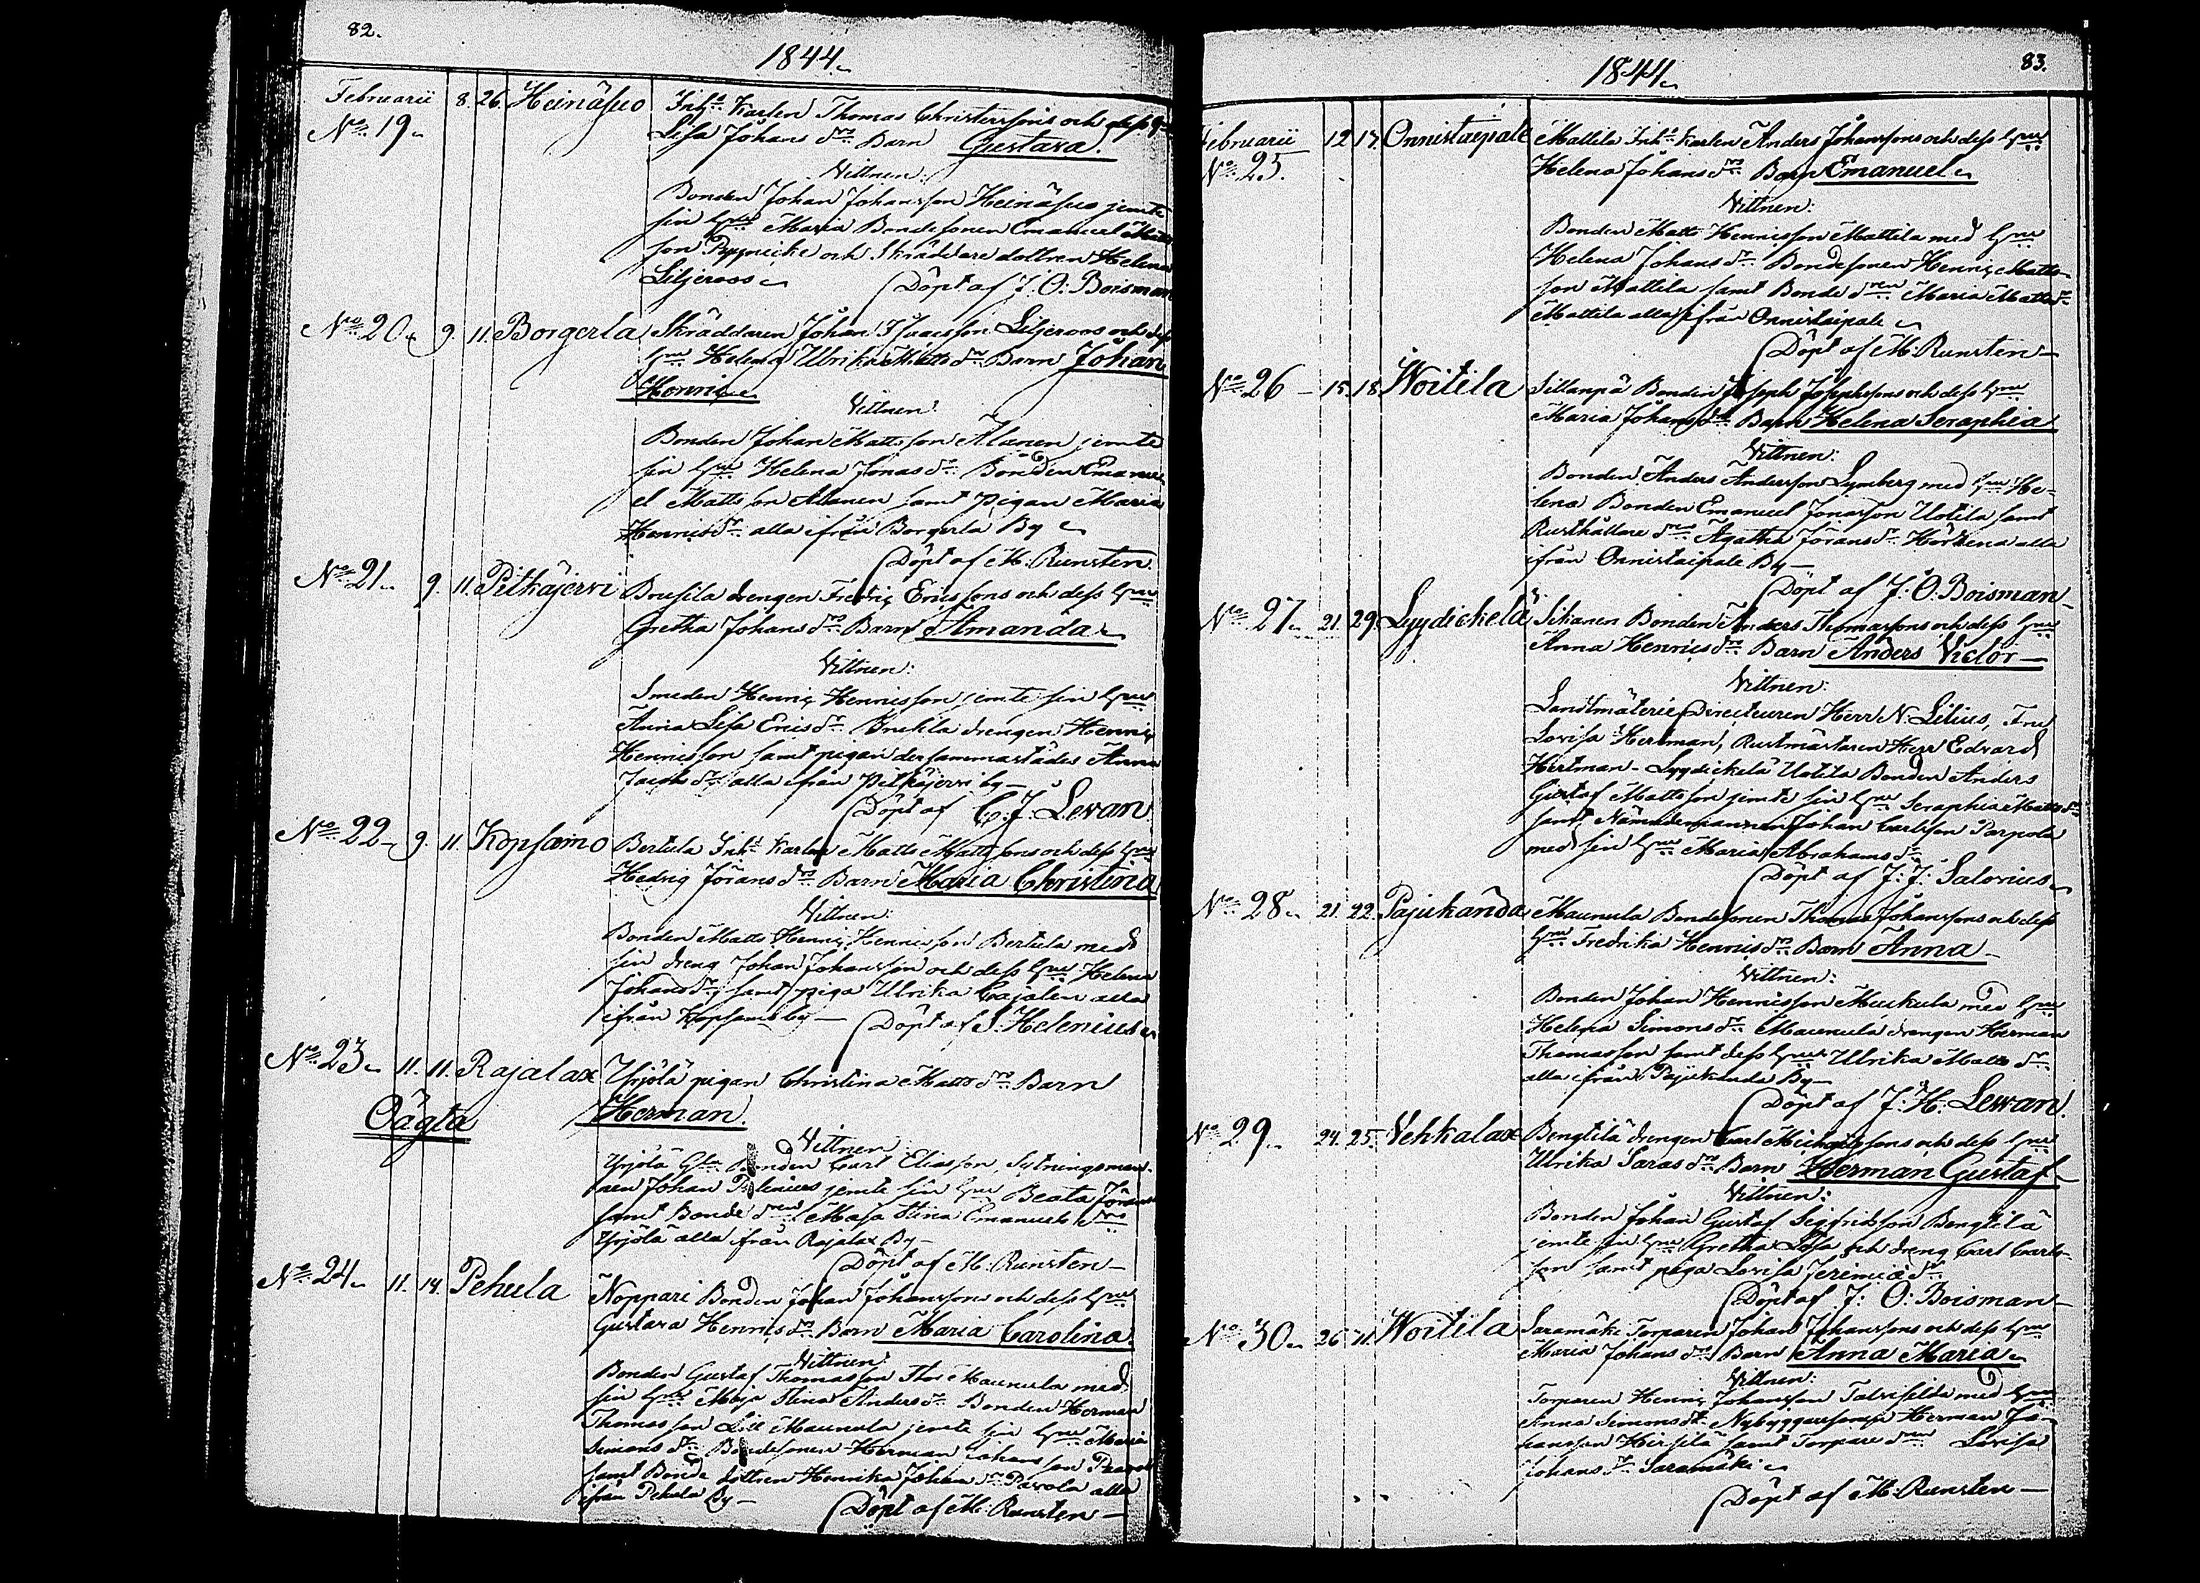 82.
1844.
Februarii 8. 26. Heinäsuo Inh.s Karlen Thomas Christerssons och dess
No 19. Lisa Johans dr Barn Gustava.
Vittnen:
Bonden Johan Johansson Heinäsuo jemte
sin hru Maria Bondesonen Emanuel
son och Skräddare dottren Helena
Liljeroos Döpt af J. O: Boisman
No 20. 9. 11. Borgerla Skräddaren Johan Isaacsson Liljeroos och dess
hru Helena Ulrika Matts dr Barn Johan
Henric
Vittnen:
Bonden Johan Mattsson Alanen jemte
sin hru Helena Jonas dr Bonden Emanu
el Mattsson Alanen samt pigan Maria
Henrics dr alla ifrån Borgerla By
Döpt af M: Runsten.
No 21. 9. 11. Pitkäjervi Brusila drengen Fredric Ericssons och dess hru
Gretha Johans dr Barn Amanda
Vittnen:
Smeden Henric Henricsson jemte sin hru
Anna Lisa Erics dr Brusila drengen Henric
Henricsson samt pigan dersammastädes Anna
Jacobs dr alla ifrån Pitkäjervi by
Döpt af C. J. Levan
No 22. 9. 11. Kopsamo Bertula Inh.s Karlen Matts Mattssons och dess hru
Hedvig Jörans dr Barn Maria Christina
Vittnen:
Bonden Matts Henric Henricsson Bertula med
sin dreng Johan Johansson och dess hru Helena
Johans dr samt piga Ulrika Cajalen alla
ifrån Kopsamo by Döpt af S. Helenius
No 23. 11. 11. Rajalax Yrjölä pigan Christina Matts dr Barn
Oägta Herman.
Vittnen:
Yrjölä Bonden Carl Eliasson, Sytningsman-
nen Johan jemte sin hru Beata Jörans
samt Bonde dren Maja Stina Emanuels dr
Yrjölä alla ifrån Rajalax By
Döpt af M: Runsten
No 24. 11. 14. Pehula Noppari Bonden Johan Johanssons och dess hru
Gustava Henrics dr Barn Maria Carolina.
Vittnen:
Bonden Gustaf Thomasson Maunula med
sin hru Maja Stina Anders dr Bonden Herman
Thomasson Maunula jemte sin hru Maria
Simons dr Bondesonen Herman Johansson Pavola
samt Bonde dottren Henrika Johans dr Pavola alla
ifrån Pehula By
Döpt af M: Runsten
83.
1844.
Februarii 12. 17. Onnistaipale Mattila Inh.s Karlen Anders Johanssons och dess hru
No 25. Helena Johans dr Barn Emanuel
Vittnen:
Bonden Matts Henricsson Mattila med hru
Helena Johans dr Bondesonen Henric Matts-
son Mattila samt Bonde dren Maria Matts dr
Mattila alla ifrån Onnistaipale
Döpt af M: Runsten
No 26 15. 18. Woitila Sillanpä Bonden Joseph Josephssons och dess hru
Maria Johans dr Barn Helena Seraphia
Vittnen:
Bonden Anders Andersson Lymberg med hru He-
lena Bonden Emanuel Jonasson Uotila samt
Rusthållare dren Agatha Jörans dr alla
ifrån Onnistaipale By
Döpt af J: O: Boisman
No 27. 21. 29. Lyydickelä Sihanen Bonden Anders Thomassons och dess hru
Anna Henrics dr Barn Anders Victor
Vittnen:
Landtmäterie Directeuren Herr N: Lilius, Fru
Lovisa Hertman, Rustmästaren Herr Edvard
Hertman Lyydickelä Uotila Bonden Anders
Gustaf Mattsson jemte sin hru Seraphia Matts dr
samt Nämndemannen Johan Carlsson Parpola
med sin hru Maria Abrahams dr
Döpt af J: J: Salovius
No 28. 21. 22. Pajukanda Maunula Bondesonen Thomas Johanssons och dess
hru Fredrika Henrics dr Barn Anna
Vittnen:
Bonden Johan Henricsson Muckula med hru
Helena Simons dr Maunula drengen Herman
Thomasson samt dess hru Ulrika Matts dr
alla ifrån Pajukanda By
Döpt af J: H: Lewan.
No 29. 24. 25. Vehkalax Bengtilä drengen Carl Michelssons och dess hru
Ulrika Saras dr Barn Herman Gustaf
Vittnen:
Bonden Johan Gustaf Sigfridsson Bengtilä
jemte sin hru Gretha Lisa och dreng Carl Carls-
son samt piga Lovisa Jeremiä dr
Döpt af J: O: Boisman
No 30. 26. Woitila Saramäki Torparen Johan Johanssons och dess hru
Maria Johans dr Barn Anna Maria
Vittnen:
Torparen Henric Johansson Talvisilda med hru
Anna Simons dr Nybyggaresonen Herman Jo-
hansson Hirsilä samt Torpare dren Lovisa
Johans dr Saramäki
Döpt af M: Runsten